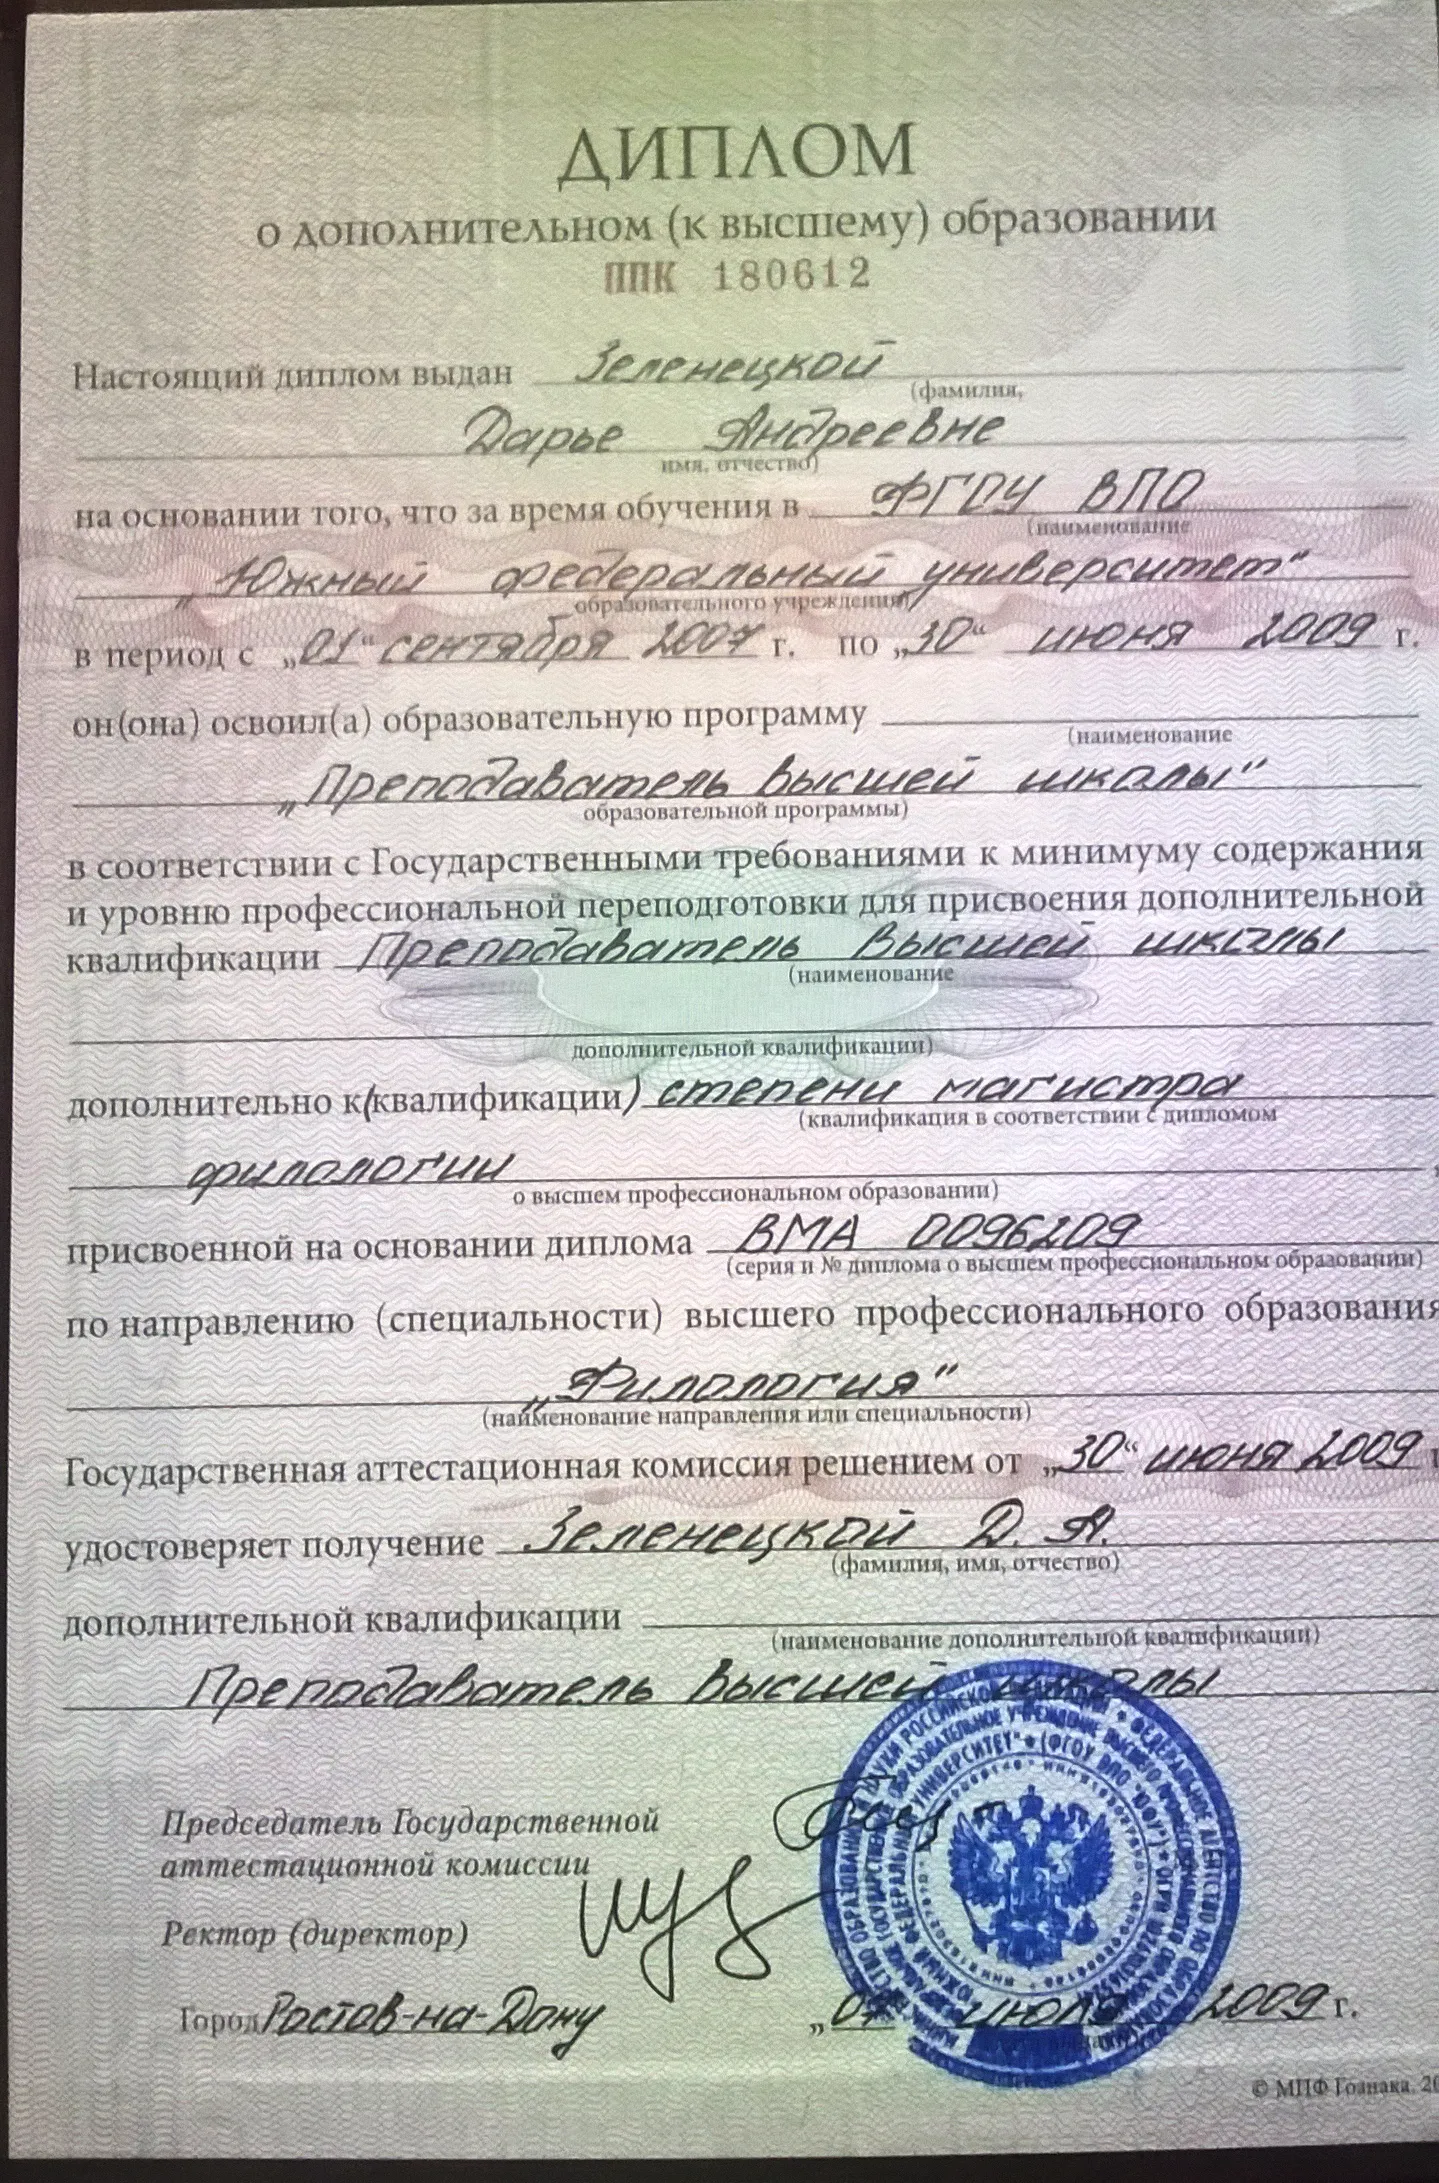 ДИПЛОМ
о дополнительном (к высшему) образовании
ППК 180612
Настоящий диплом выдан Зеленецкой
(фамилия,
Дарье Андреевне
имя, отчество)
на основании того, что за время обучения в ФГОУ ВПО
(наименование
„Южный федеральный университет"
образовательного учреждения)
в период с „01“ сентября 2007 г. по „30“ июня 2009 г.
он(она) освоил(а) образовательную программу
(наименование
„Преподаватель высшей школы"
образовательной программы)
в соответствии с Государственными требованиями к минимуму содержания
и уровню профессиональной переподготовки для присвоения дополнительной
квалификации Преподаватель высшей школы
(наименование
дополнительной квалификации)
дополнительно к(квалификации) степени магистра
(квалификация в соответствии с дипломом
филологии,
о высшем профессиональном образовании)
присвоенной на основании диплома ВМА 0096209
(серия и № диплома о высшем профессиональном образовании)
по направлению (специальности) высшего профессионального образования
„Филология"
(наименование направления или специальности)
Государственная аттестационная комиссия решением от „30“ июня 2009 г
удостоверяет получение Зеленецкой Д. А.
(фамилия, имя, отчество)
дополнительной квалификации
(наименование дополнительной квалификации)
Преподаватель высшей школы
Председатель Государственной
аттестационной комиссии
Ректор (директор)
Город Ростов-на-Дону „07 июля 2009 г.
© МПФ Гознака, 20